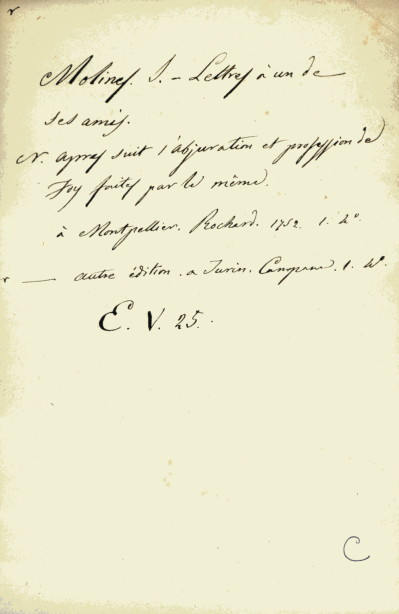 r
Molines. J. - Lettres à un de
ses amis.
N. apres suit l'abjuration et profession de
Foy faites par le même.
à Montpellier. Rochard. 1752. 1. 4°.
r — autre édition. a Turin. Campana. 1. 4°.
E. V. 25.
C